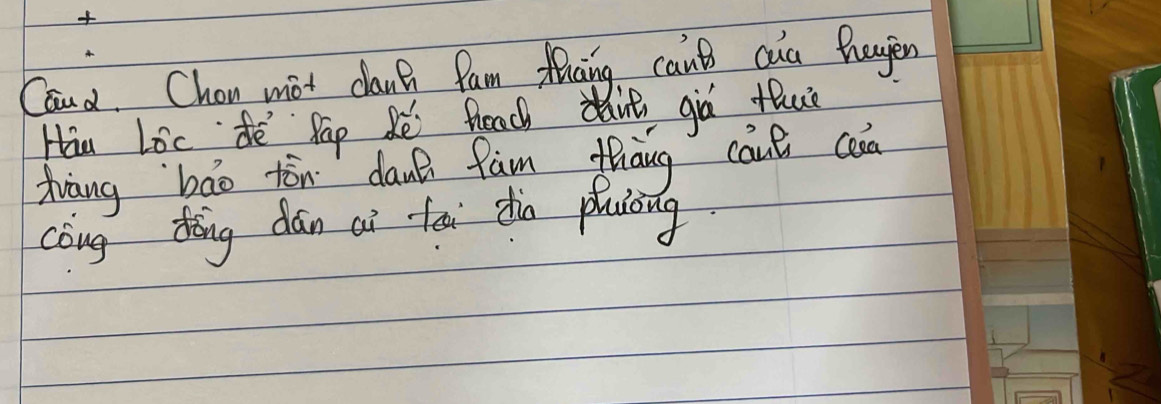 Câu 2. Chọn một danh lam thắng cảnh của huyện
Hậu Lộc để lập kế hoạch đánh giá thực
trạng bảo tồn danh lam thắng cảnh của
cộng đồng dân cư tại địa phương.